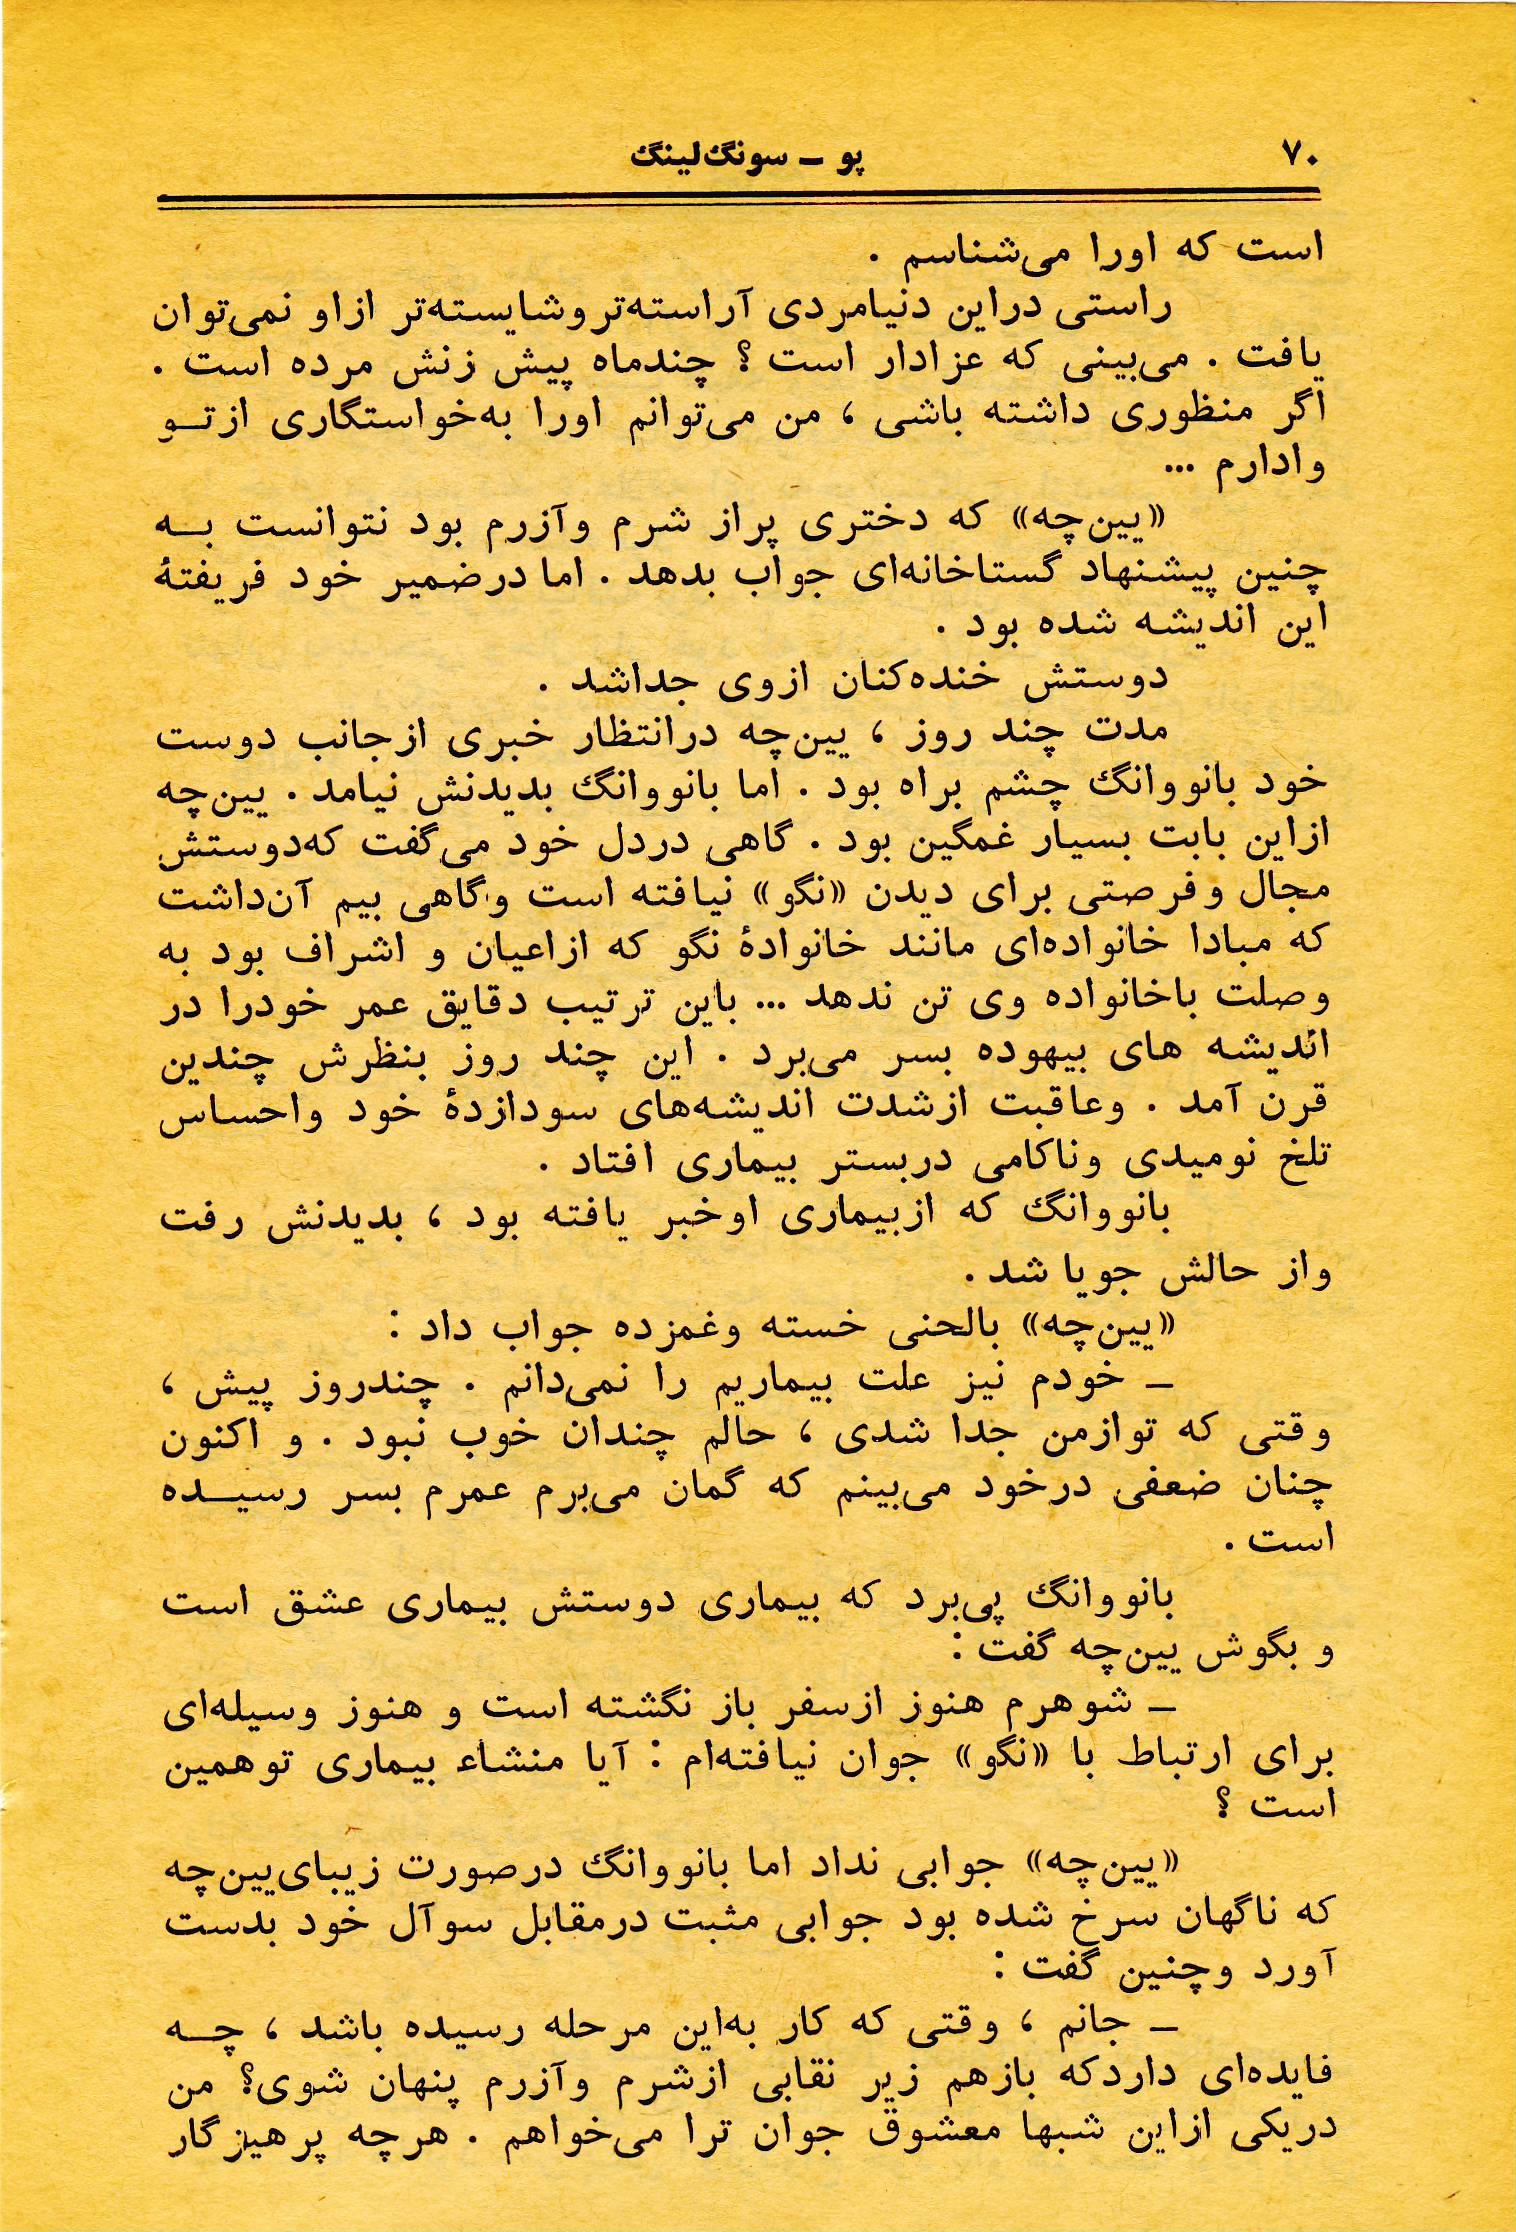 ۷۰
پو ــ سونگ‌لینگ
است که اورا می‌شناسم .
راستی دراین دنیامردی آراسته‌تر وشایسته‌تر ازاو نمی‌توان
یافت . می‌بینی که عزادار است ؟ چندماه پیش زنش مرده است .
اگر منظوری داشته باشی ، من می‌توانم اورا به‌خواستگاری ازتــو
وادارم ...
«یین‌چه» که دختری پراز شرم وآزرم بود نتوانست بــه
چنین پیشنهاد گستاخانه‌ای جواب بدهد . اما درضمیر خود فریفتهٔ
این اندیشه شده بود .
دوستش خنده‌کنان ازوی جداشد .
مدت چند روز ، یین‌چه درانتظار خبری ازجانب دوست
خود بانووانگ چشم براه بود . اما بانووانگ بدیدنش نیامد . یین‌چه
ازاین بابت بسیار غمگین بود . گاهی دردل خود می‌گفت که‌دوستش
مجال وفرصتی برای دیدن «نگو» نیافته است وگاهی بیم آن‌داشت
که مبادا خانواده‌ای مانند خانوادهٔ نگو که ازاعیان و اشراف بود به
وصلت باخانواده وی تن ندهد ... باین ترتیب دقایق عمر خودرا در
اندیشه های بیهوده بسر می‌برد . این چند روز بنظرش چندین
قرن آمد . وعاقبت ازشدت اندیشه‌های سودازدهٔ خود واحساس
تلخ نومیدی وناکامی دربستر بیماری افتاد .
بانووانگ که ازبیماری اوخبر یافته بود ، بدیدنش رفت
واز حالش جویا شد .
«یین‌چه» بالحنی خسته وغمزده جواب داد :
ــ خودم نیز علت بیماریم را نمی‌دانم . چندروز پیش ،
وقتی که توازمن جدا شدی ، حالم چندان خوب نبود . و اکنون
چنان ضعفی درخود می‌بینم که گمان می‌برم عمرم بسر رسیــده
است .
بانووانگ پی‌برد که بیماری دوستش بیماری عشق است
و بگوش یین‌چه گفت :
ــ شوهرم هنوز ازسفر باز نگشته است و هنوز وسیله‌ای
برای ارتباط با «نگو» جوان نیافته‌ام : آیا منشاء بیماری توهمین
است ؟
«یین‌چه» جوابی نداد اما بانووانگ درصورت زیبای‌یین‌چه
که ناگهان سرخ شده بود جوابی مثبت درمقابل سوآل خود بدست
آورد وچنین گفت :
ــ جانم ، وقتی که کار به‌این مرحله رسیده باشد ، چــه
فایده‌ای داردکه بازهم زیر نقابی ازشرم وآزرم پنهان شوی؟ من
دریکی ازاین شبها معشوق جوان ترا می‌خواهم . هرچه پرهیزگار